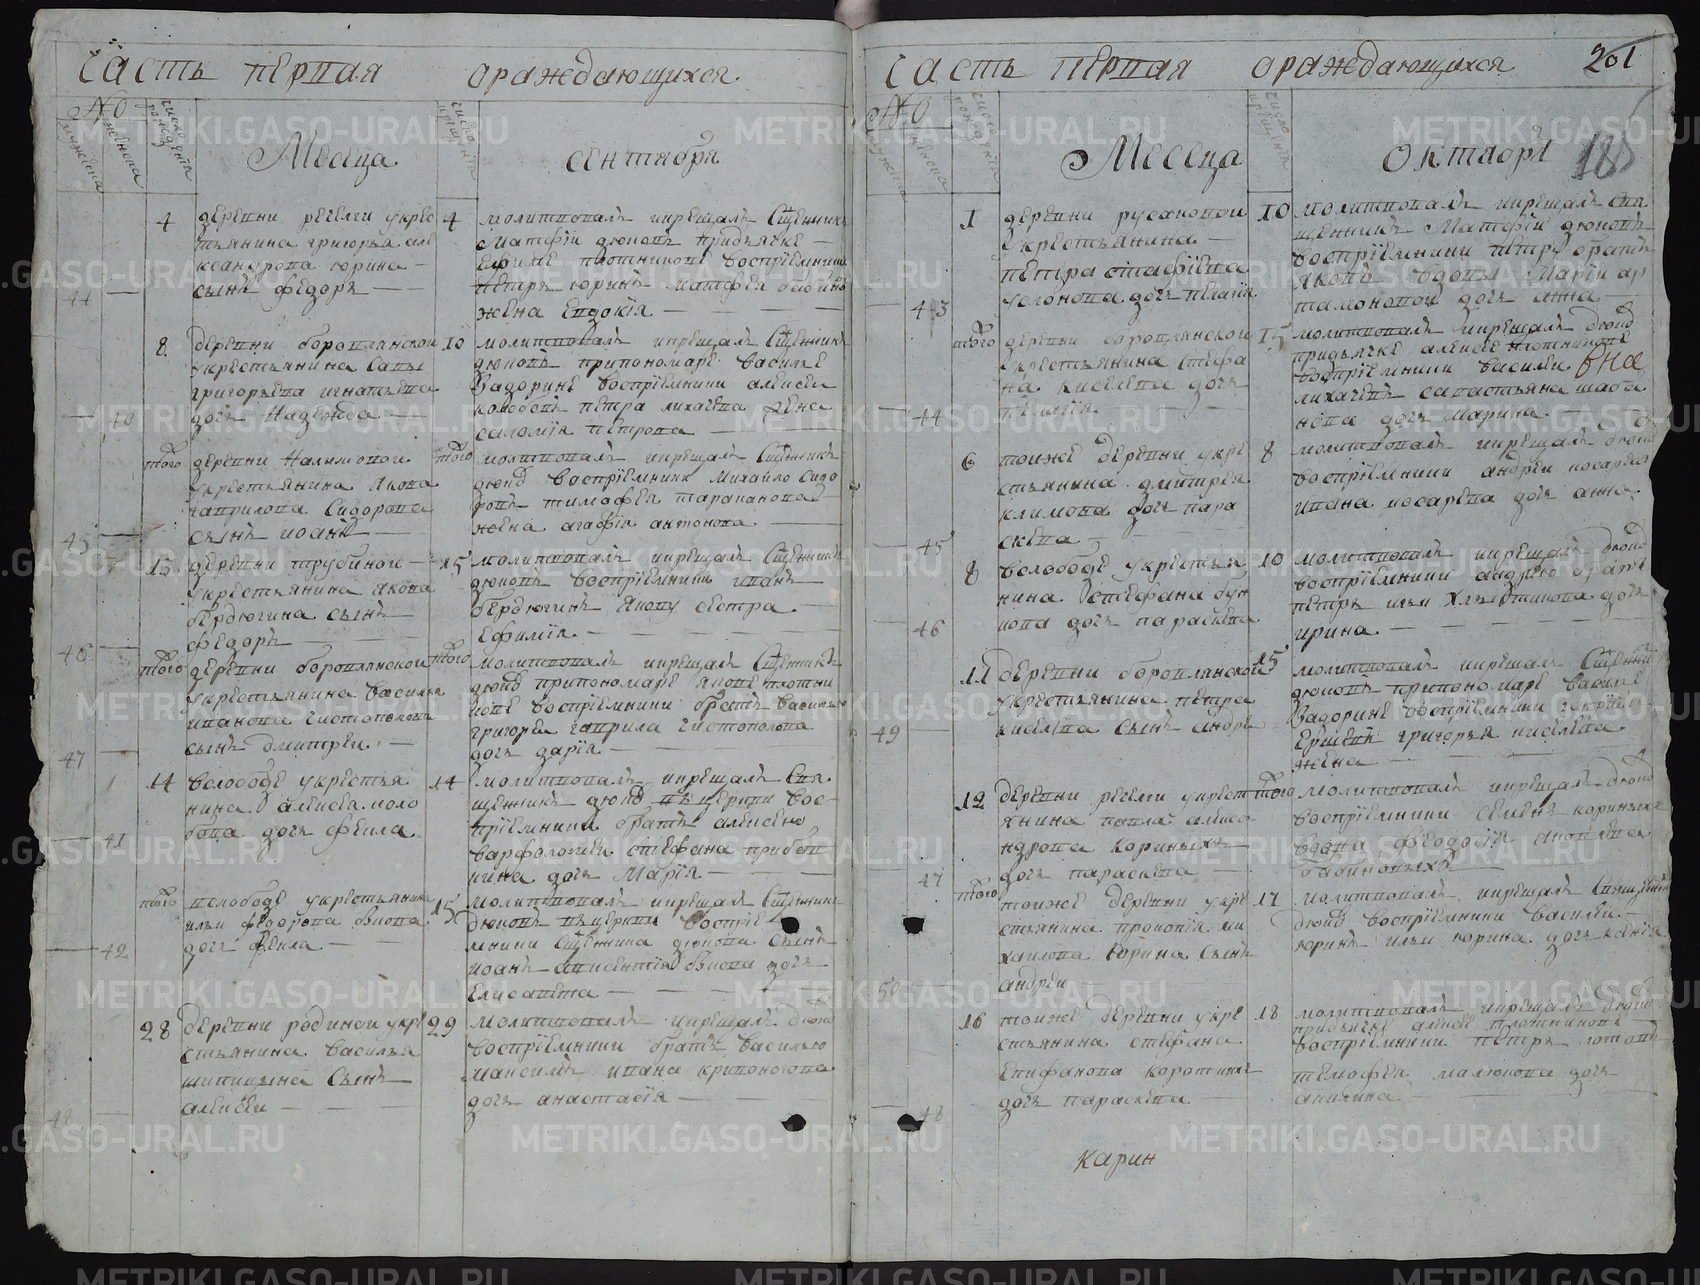 Часть первая ораждающихся
№
мужеска
женска
число рождения
Месеца
число крещения
сентября
44
4
деревни речелги укрес
тьянина григорья але
ксандрова юрина
сынъ федоръ
4
молитвовалъ икрещалъ Сщенникъ
Матфiй дюковъ придьячке
Ефиме плотникове восприемники
петръ юринъ матфея бабина
жена Евдокiя
40
8
деревни боровлянской
укрестьянина Савы
григорьева игнатьева
дочь Надежда
10
молитвовалъ икрещалъ Сщенникъ
дюковъ припономаре василье
Задорине восприемники алексеи
коковевъ петра лихачева жена
соломiя петрова
45
того
деревни Налимовой
укрестьянина якова
гаврилова Сидорова
сынъ иоанн
того
молитвовалъ икрещалъ Сщенникъ
дюков восприемники Михайло сидо
ровъ тимофея тараканова
жена агафiя антонова
46
13
деревни трубиной
укрестьянина якова
бердюгина сынъ
федоръ
15
молитвовалъ икрещалъ Сщенникъ
дюковъ восприемники иванъ
бердюгинъ якову сестра
Ефимiя
47
того
деревни боровлянской
укрестьянина василья
иванова чистополова
сынъ дмитреи
того
молитвовалъ икрещалъ Сщенникъ
дюков припономаре якове плотни
кове восприемники братъ василью
григореи гаврила чистополова
дочь дарiя
41
14
вслободе укрестья
нина алексея моло
бова дочь феила
14
молитвовалъ икрещалъ Свя
щенникъ дюков вьцеркви вос
приемники братъ алексею
варфоломеи стефана прибыт
кина дочь Марiя
42
того
вслободе укрестьянина
ильи федорова быкова
дочь феила
15
молитвовалъ икрещалъ Сщенникъ
дюковъ вьцеркви восприе
мники Сщенника дюкова сынъ
иоанъ авксентiя быкова дочь
Елисавета
48
28
деревни родиной укре
стьянина василья
шипицына Сынъ
алексеи
29
молитвовалъ икрещалъ дюков
восприемники братъ василью
максимъ ивана кривоногова
дочь анастасiя
Часть первая ораждающихся
201
№
мужеска
женска
число рождения
Месеца
число крещения
Октября
185
43
1
деревни русаковой
укрестьянина
петра стафiева
усолнова дочь пелагiя
10
молитвовалъ икрещалъ свя
щенникъ Матфiй дюковъ
восприемники петру братъ
яковъ вдовы Марiи ар
тамоновой дочь анна
44
того
деревни боровлянской
укрестьянина стефа
на киселева дочь
пелагiя
15
молитвовалъ икрещалъ дюков
придьячке алексее плотникове
восприемники василеи
лихачевъ савастьяна шаба
нова дочь марина
45
6
тоиже деревни укре
стьянина дмитрея
климова дочь пара
скева
8
молитвовалъ икрещалъ дюков
восприемники андреи косаревъ
ивана косарева дочь анна
46
8
вслободе укрестья
нина Стефана бун
кова дочь параскева
10
молитвовалъ икрещалъ дюков
восприемники андрею братъ
петръ ильи хлызтикова дочь
ирина
49
11
деревни боровлянской
укрестьянина петра
киселева Сынъ андре
15
молитвовалъ икрещалъ Сщенникъ
дюковъ припономаре василье
Задорине восприемники гаврило
Ершевъ григорья киселева
жена
47
12
деревни речелги укрест
янина павла алекса
ндрова кориныхъ
дочь параскева
того
молитвовалъ икрещалъ дюков
восприемники семенъ кориныхъ
вдова феодосiя яковлева
бабиновыхъ
50
того
тоиже деревни укре
стьянина прокопiя ми
хаилова юрина сынъ
андреи
17
молитвовалъ икрещалъ священникъ
дюков восприемники василеи
юринъ ильи юрина дочь ксенiя
48
16
тоиже деревни укре
стьянина стефана
Епифанова коротких
дочь параскева
18
молитвовалъ икрещалъ дюков
придьячке алексее плотникове
восприемники петръ юковъ
тимофея малюкова дочь
акилина
карин